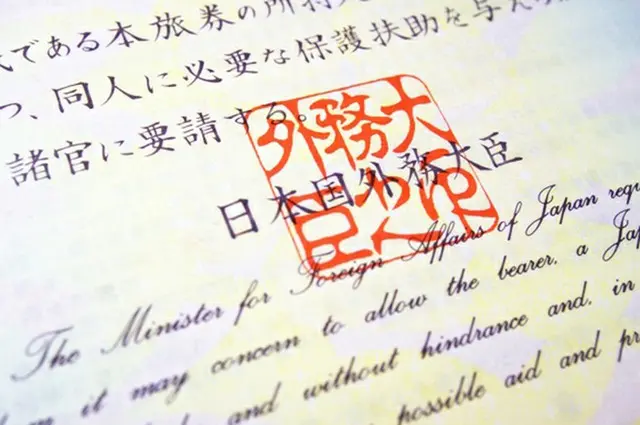 である本旅券の所持
つ、同人に必要な保護扶助を与え
諸官に要請する。
外務大
日本国外務大臣
The Minister for Foreign Affairs of Japan requ
it may concern to allow the bearer, a Jap
and without hindrance and, in
possible aid and pr